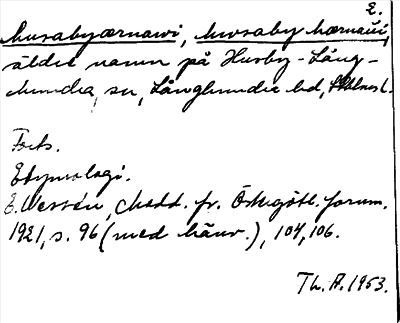 2.
husabyærnawi, hwsaby hærnawi,
äldre namn på Husby-Lång-
hundra sn, Långhundra hd, Sthlms l.
Forts.
Etymologi.
E. Wessén, Medd. fr. Östergötl. fornm.
1921, s. 96 (med hänv.), 104, 106.
Th. A. 1953.